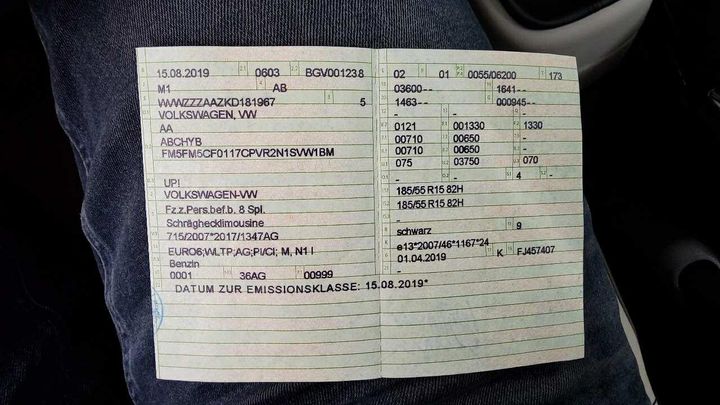 15.08.2019 0603 BGV001238
M1 AB
WVWZZZAAZKD181967 5
VOLKSWAGEN, VW
AA
ABCHYB
FM5FM5CF0117CPVR2N1SVW1BM
UP!
VOLKSWAGEN-VW
Fz.z.Pers.bef.b. 8 Spl.
Schräghecklimousine
715/2007*2017/1347AG
EURO6;WLTP;AG;PI/CI; M, N1 I
Benzin
0001 36AG 00999
DATUM ZUR EMISSIONSKLASSE: 15.08.2019*
02 01 0055/06200 173
03600-- 1641--
1463-- 000945--
- - -
0121 001330 1330
00710 00650
00710 00650
075 03750 070
- - 4 -
185/55 R15 82H
185/55 R15 82H
-
schwarz 9
e13*2007/46*1167*24
01.04.2019 K FJ457407
-